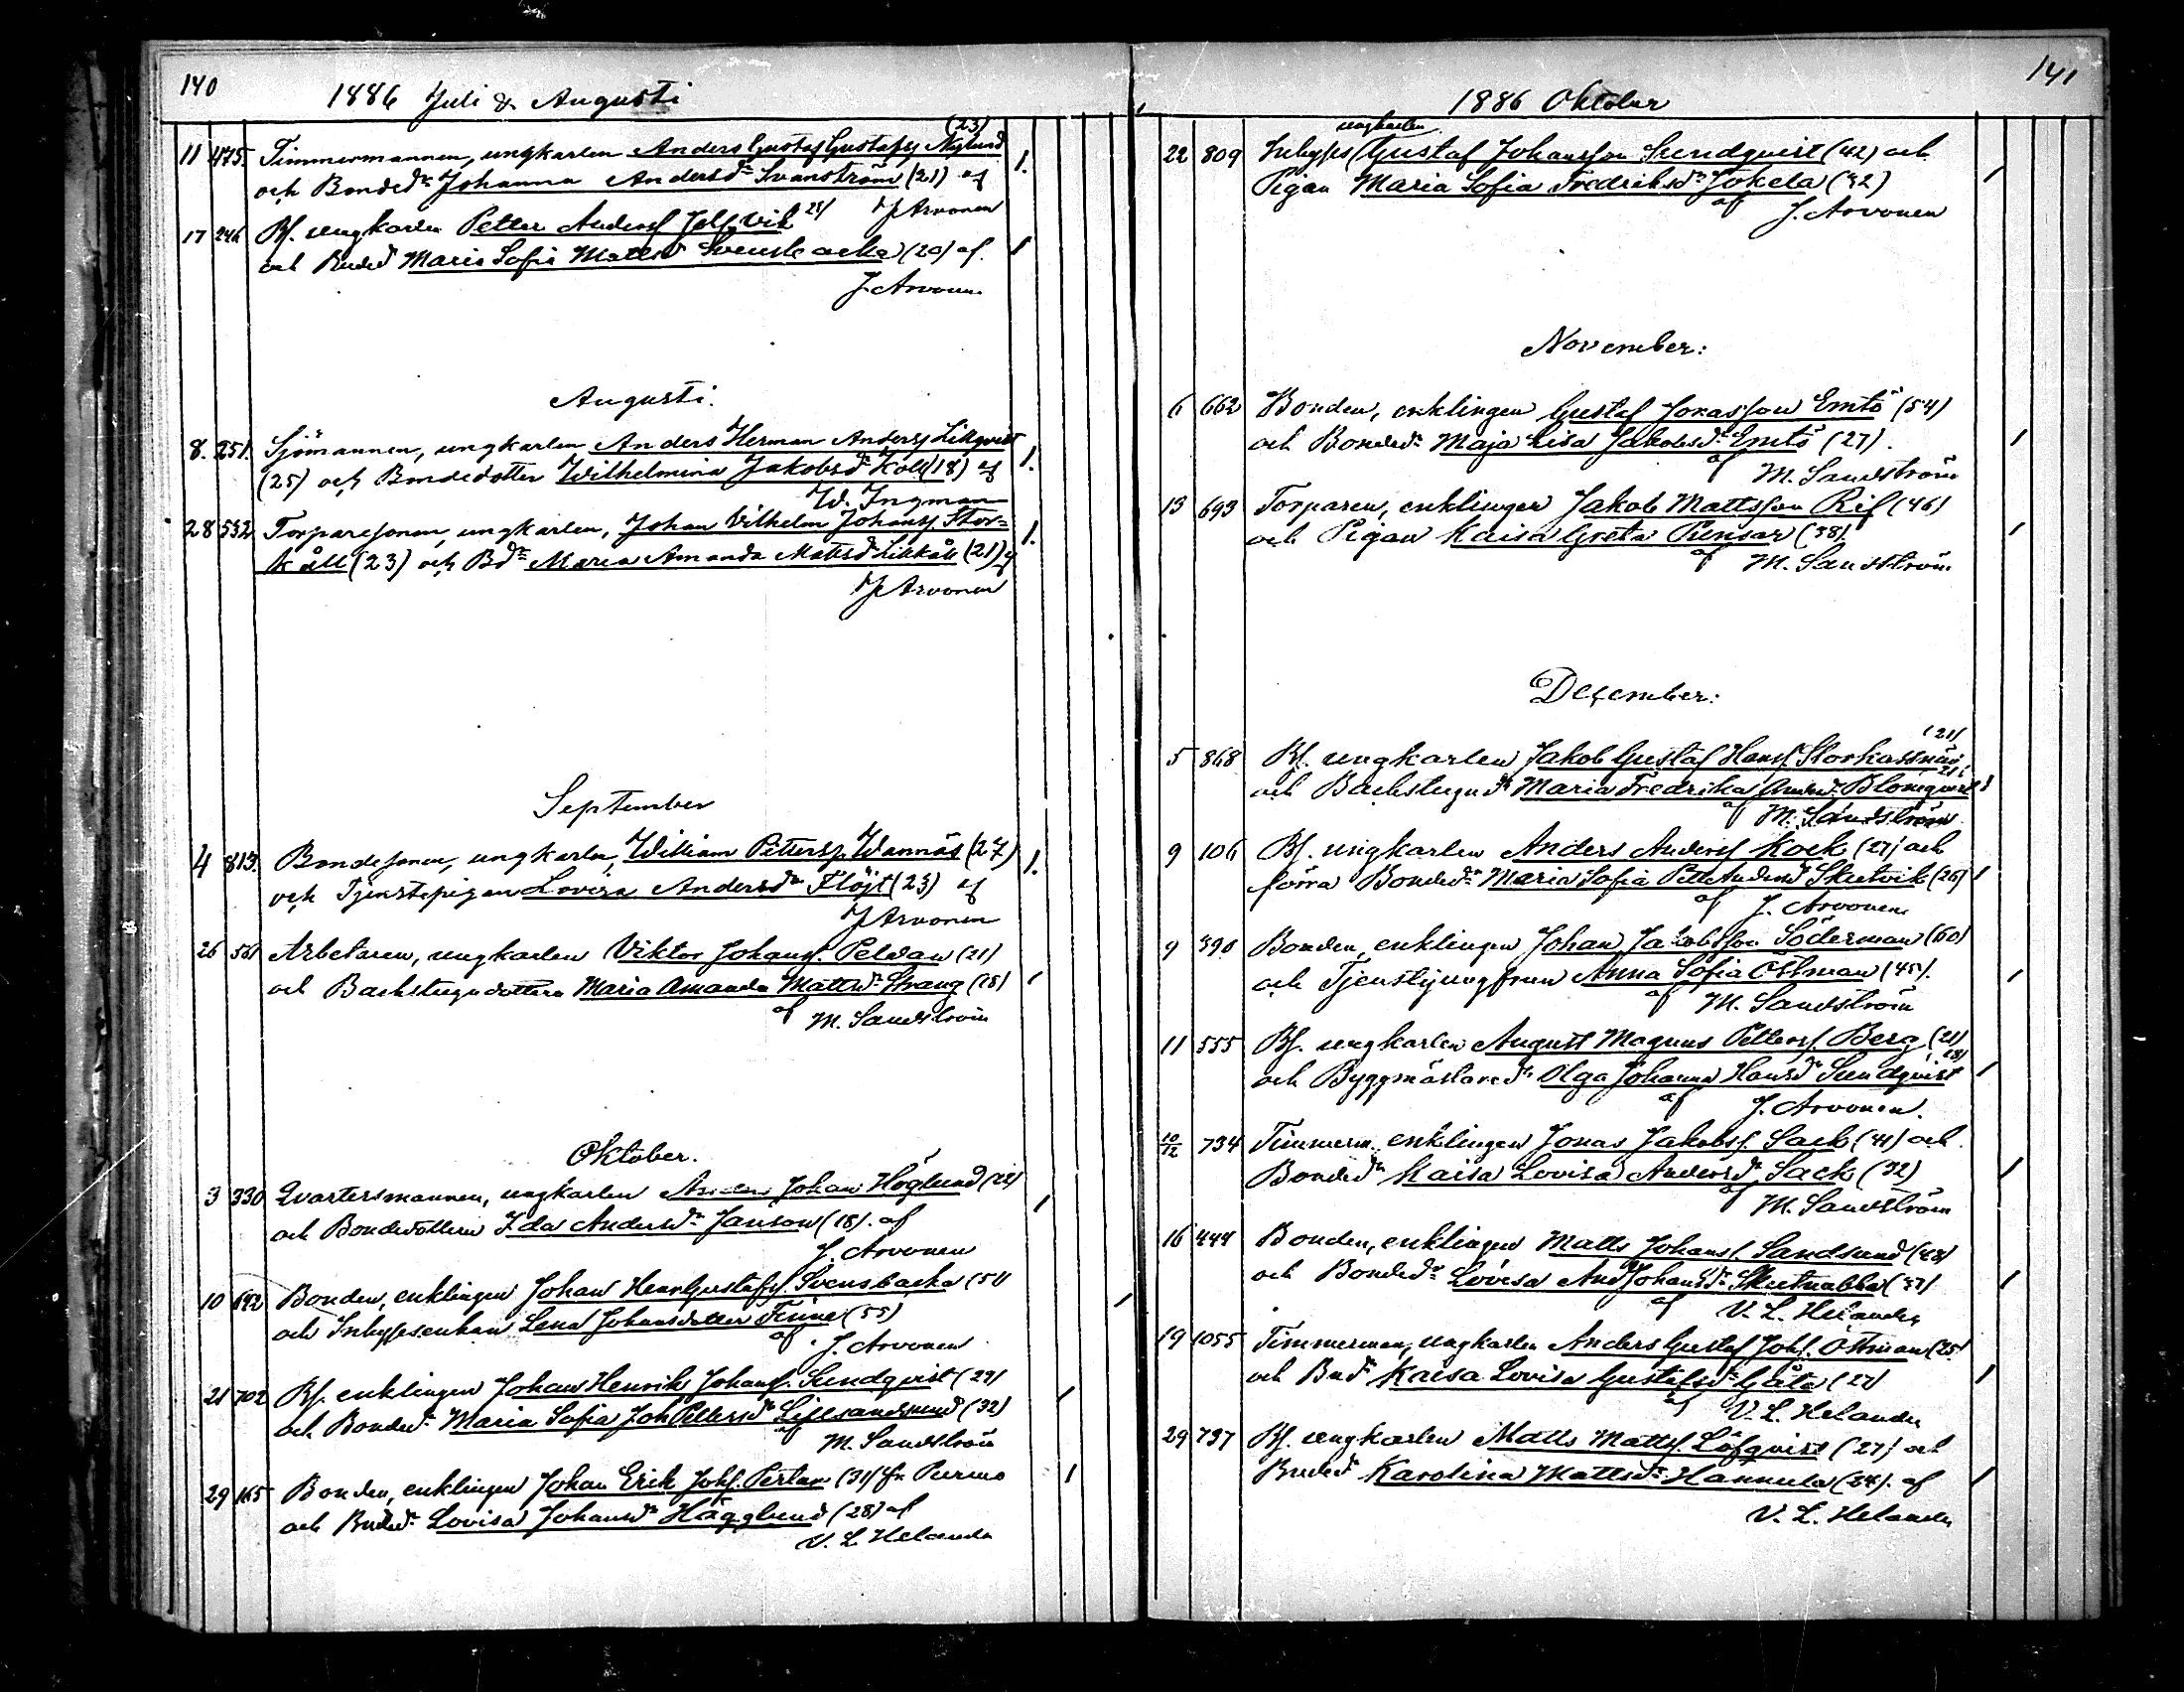 140
1886 Juli & Augusti
11 475. Timmermannen, ungkarlen Anders Gustaf Gustafss Nylund (23)
och Bonded:r Johanna Andersd:r Svanström (21) af 1.
J Arvonen
17 246 Bs. ungkarlen Petter Anderss 25/
och Bonded Maria Sofia Mattsd Svenskbacka (20) af. 1
J. Arvonen
Augusti.
8. 251. Sjömannen, ungkarlen Anders Herman Anderss Lillqvist
(25) och Bondedotter Wilhelmina Jakobsd:r Koll (18) af 1.
W. Ingman
28 532 Torparesonen, ungkarlen, Johan Vilhelm Johanss Stor=
kåll (23) och Bd:r Maria Amanda Mattsd Lillkåll (21) af 1.
J Arvonen
September
4 813. Bondesonen, ungkarlen, William Petterss. Wannäs (27)
och Tjenstepigan Lovisa Andersd:r Flöjt (23) af 1.
J Arvonen
26 561 Arbetaren, ungkarlen Viktor Johanss. Peldan (21)
och Backstugudottern Maria Amanda Mattsd:r Strang (18) 1
af M. Sandström
Oktober.
3 330 Qvartersmannen, ungkarlen Anders Johan Höglund (22)
och Bondedottern Ida Andersd:r Janson (18). af 1
J. Arvonen
10 692 Bonden, enklingen Johan Henr Gustafss. Svensbacka (51)
och Inhysesenkan Lena Johansdotter Finne (55) 1
af J. Arvonen
21 702 Bs. enklingen Johan Henrik Johanss. Sundqvist (29)
och Bonded:r Maria Sofia Joh Pettersd:r Liljesandsund (32) 1
af M. Sandström
29 165 Bonden, enklingen Johan Erik Johs. Pertan (31) fr. Purmo
och Bonded:r Lovisa Johansd:r Hägglund (28) af 1
V. L. Helander
141
1886 Oktober
ungkarlen
22 809 Inhyses Gustaf Johansson Sundqvist (42) och
Pigan Maria Sofia Fredriksd:r Jokela (32) 1
af J. Arvonen
November:
6 662 Bonden, enklingen Gustaf Jonasson Emtö (54)
och Bonded:r Maja Lisa Jakobsd:r Emtö (27). 1
af M. Sandström
13 693 Torparen, enklingen Jakob Mattsson Rif (46)
och Pigan Kaisa Greta Punsar (38). 1
af M. Sandström
December:
5 868 Bs. ungkarlen Jakob Gustaf Hanss. Storkassnäs (21)
och Backstugud:r Maria Fredrika Andersd:r Blomqvist 21 1
af M. Sandström
9 106 Bs. ungkarlen Anders Anderss Kock (21) och
förra Bonded:r Maria Sofia Pett Andersd Skutvik (26) 1
af J. Arvonen
9 390 Bonden, enklingen Johan Jakobsson Söderman (60)
och Tjenstjungfrun Anna Sofia Östman (45). 1
af M. Sandström
11 555 Bs. ungkarlen August Magnus Petterss. Berg (21)
och Byggmästared:r Olga Johanna Hansd:r Sundqvist (18) 1
af J. Arvonen.
10/12 734 Timmerm. enklingen Jonas Jakobss. Sack (41) och
Bonded:r Kaisa Lovisa Andersd:r Sack (32) 1
af M. Sandström
16 444 Bonden, enklingen Matts Johanss. Sandsund (48)
och Bonded:r Lovisa And Johansd:r Skutnabba (37) 1
af V. L. Helander
19 1055 Timmerman, ungkarlen Anders Gustaf Johs. Östman (25)
och Bnd:r Kaisa Lovisa Gustafsd:r Gäta (21) 1
af V. L. Helander
29 737 Bs. ungkarlen Matts Mattss. Löfqvist (27) och
Bonded:r Karolina Mattsd:r Hannula (24). af 1
V. L. Helander